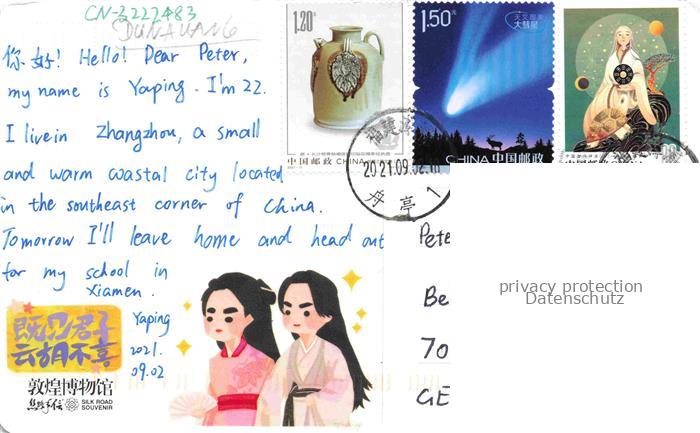 CN-3227483
DUNHUANG
你好! Hello! Dear Peter,
my name is Yaping. I'm 22.
I livein Zhangzhou, a small
and warm coastal city located
in the southeast corner of China.
Tomorrow I'll leave home and head out
for my school in
Xiamen.
Yaping
2021.
09.02
既见君子
云胡不喜
敦煌博物馆
SILK ROAD
SOUVENIR
1.20元
中国邮政 CHINA
1.50元
天文现象
大彗星
CHINA 中国邮政
2021.09.02
舟亭
1
Pete
Be
70
GE
privacy protection
Datenschutz